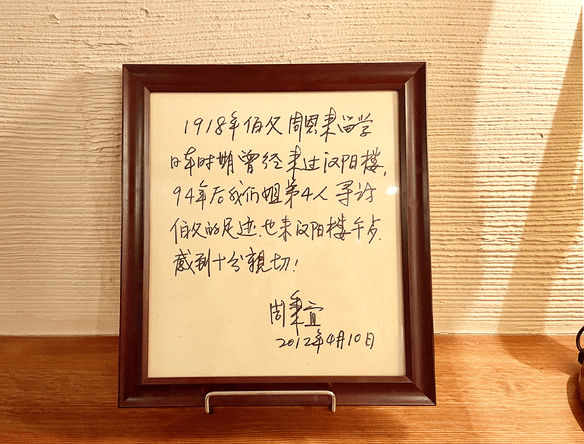 1918年伯父周恩来留学
日本时期曾经来过汉阳楼,
94年后我们姐弟4人寻访
伯父的足迹,也来汉阳楼午点.
感到十分親切!
周秉宜
2012年4月10日